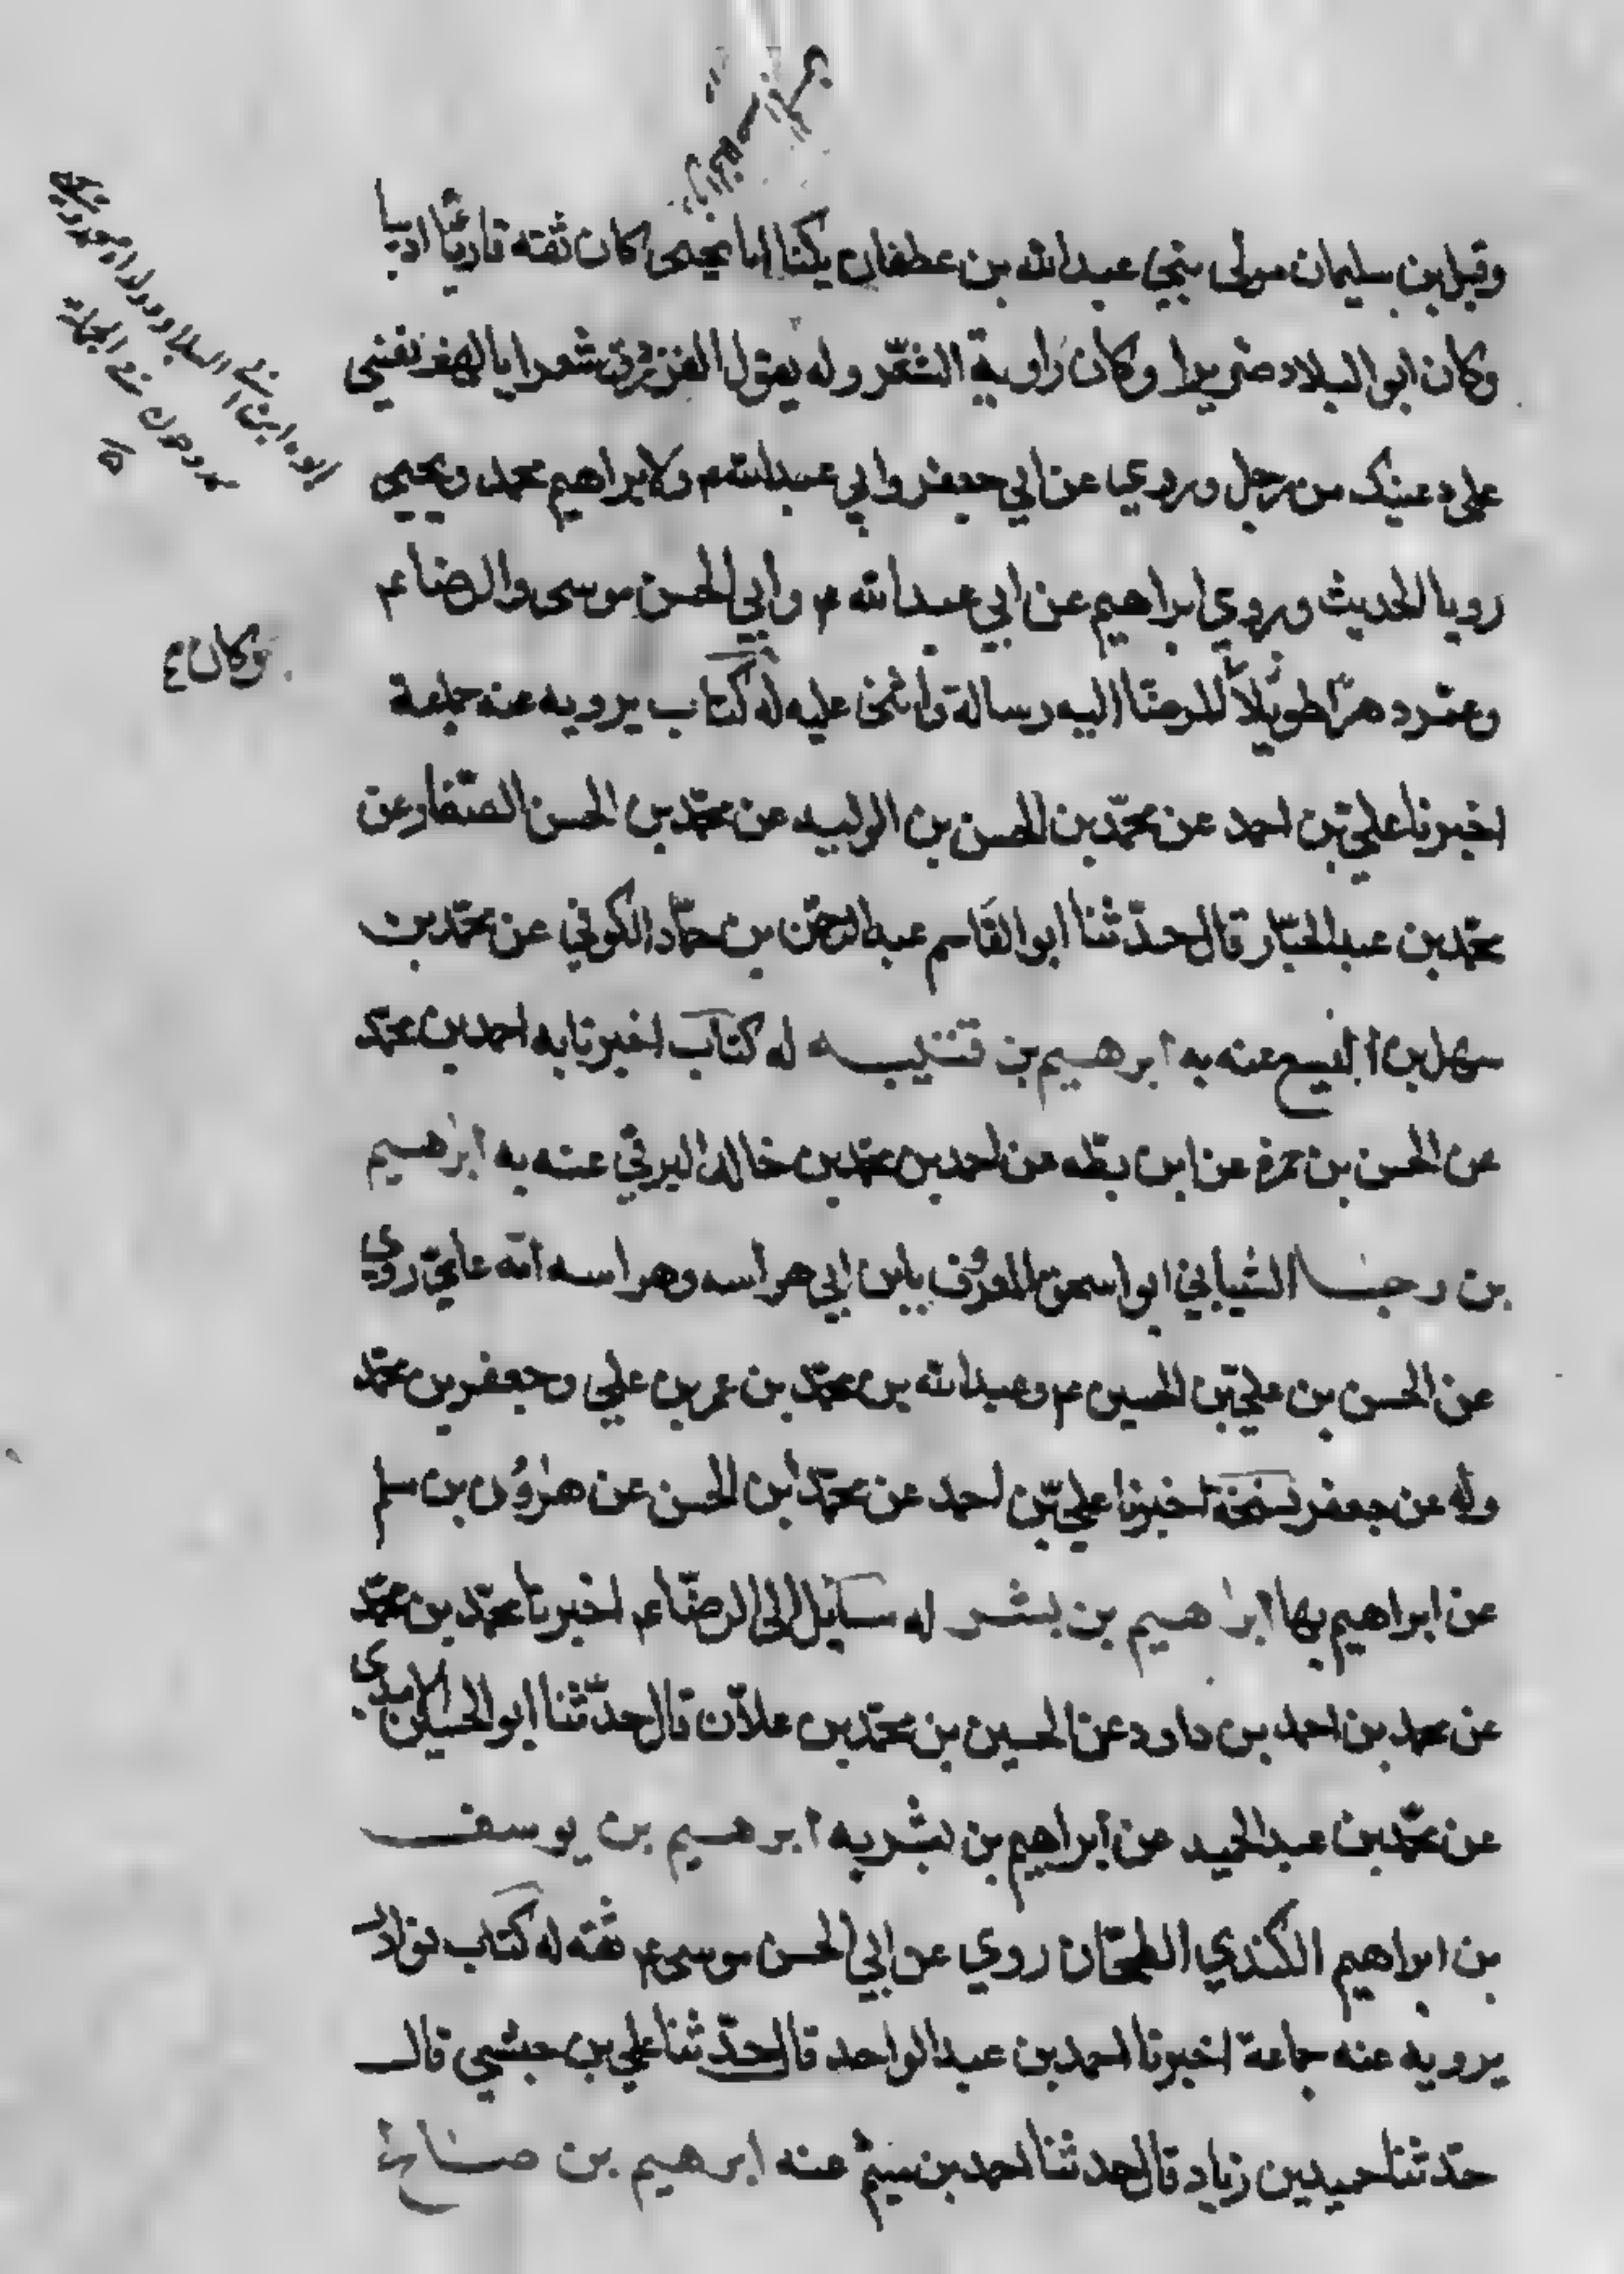 وقيل بن سليمان مولى بني عبد الله بن عطفان يكنا ابا يحيى كان ثقه قاريًا اديبا
وكان ابو البلاد ضريرا وكان راوية الشعّر وله يقول الفرزدق شعر ايا لهف نفسي
على عينيك من رجل وروي عن ابي جعفر وابي عبد الله م ولابراهيم محمد ويحيى
رويا الحديث وروي ابراهيم عن ابي عبد الله م وابي الحسن موسى والرضا عم
وعمّر دهرًا طويلًا للرضا اليه رسالة واثنى عليه له كتاب يرويه عنه جماعة
وكان ع
اخبرنا علي بن احمد عن محمّد بن الحسن بن الوليد عن محمّد بن الحسن الصّفار عن
محمّد بن عبد الجبّار قال حدّثنا ابو القاسم عبد الرحمن بن حمّاد الكوفي عن محمّد بن
سهل بن اليسع عنه به ابرهيم بن قتيبه له كتاب اخبرنا به احمد بن محمّد
عن الحسن بن حمزة عن ابن بطّه عن احمد بن محمّد بن خالد البرقي عنه به ابرهيم
بن رجا الشيباني ابو اسحق المعروف بابن ابي هراسه وهراسه امّه عامّي روي
عن الحسن بن علي بن الحسين عم وعبد الله بن محمّد بن عمر بن علي وجعفر بن محمّد
وله عن جعفر نسخة اخبرنا علي بّن احمد عن محمّد ابن الحسن عن هرون بن سلم
عن ابراهيم بها ابراهيم بن بشر له مسايل الى الرضّا عم اخبرنا محمّد بن محمّد
عن محمد بن احمد بن داود عن الحسين بن محمّد بن علّان قال حدّثنا ابو الحسين الامدي
عن محمّد بن عبد الحميد عن ابراهيم بن بشر به ابرهيم بن يوسف
بن ابراهيم الكندي الطحّان روي عن ابي الحسن موسى عم ثقه له كتاب نوادر
يرويه عنه جماعة اخبرنا احمد بن عبد الواحد قال حدّثنا علي بن حبشي قال
حدّثنا حميد بن زياد قال حدثنا احمد بن ميثم عنه ابرهيم بن صالح